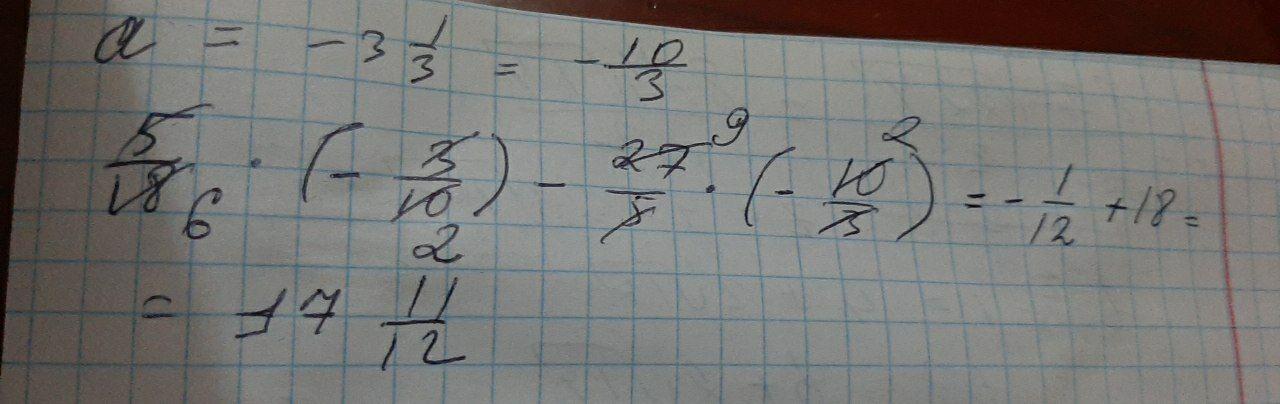 a = -3 1/3 = -10/3
5/18 6 · (-3/10 2) - 27 9/5 · (-10 2/3) = -1/12 + 18 =
= 17 11/12